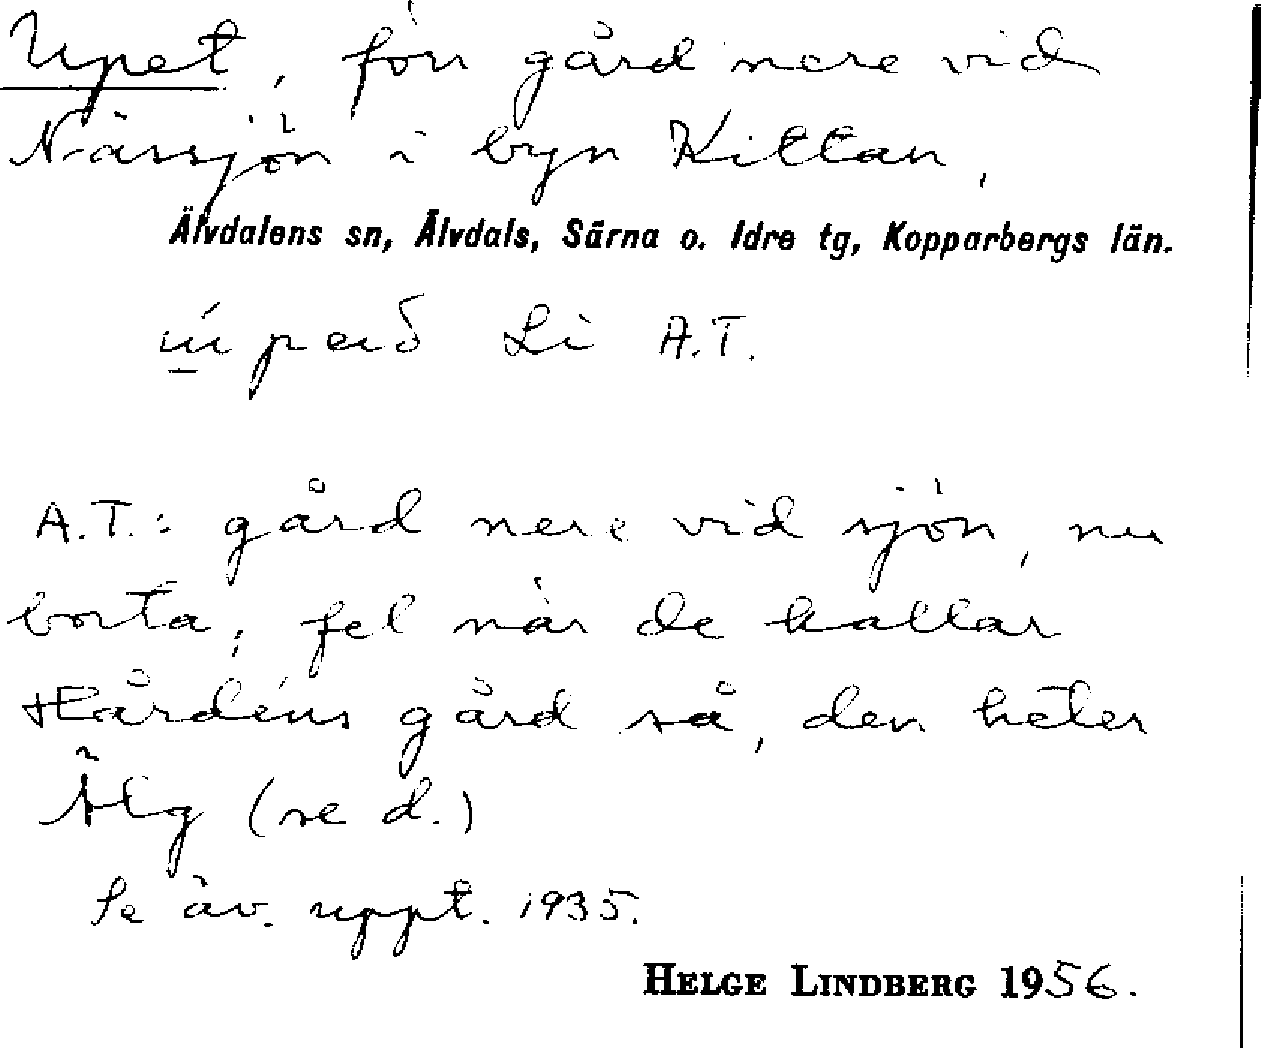 Upet, förr gård nere vid
Näsnsjön i byn Kittan,
Älvdalens sn, Älvdals, Särna o. Idre tg, Kopparbergs län.
Li A.T.
A.T.: gård nere vid sjön, nu
borta, fel när de kallar
Hårdéns gård så, den heter
Älg (se d.)
Se äv. uppt. 1935.
HELGE LINDBERG 1956.